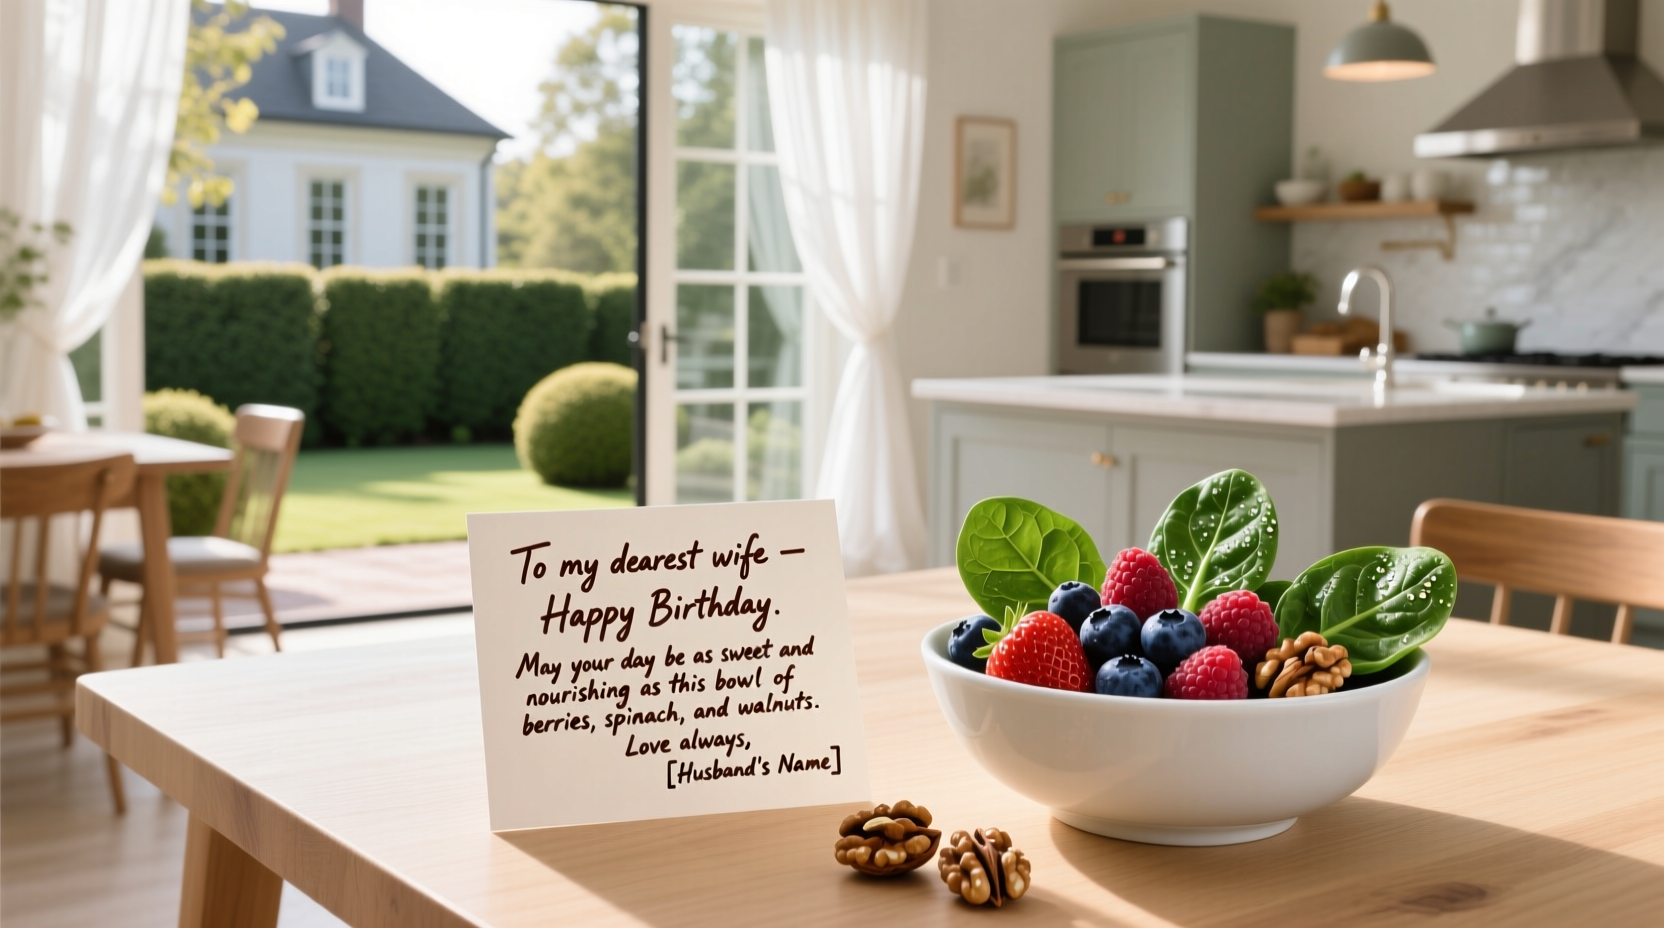 To my dearest wife —
Happy Birthday.
May your day be as sweet and
nourishing as this bowl of
berries, spinach, and walnuts.
Love always,
[Husband's Name]